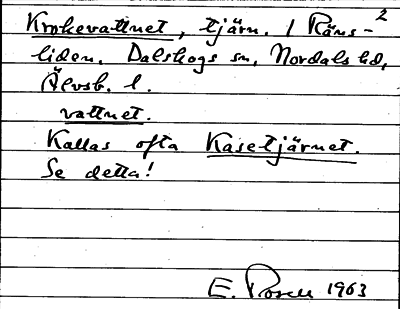 2
Krokevattnet, tjärn. / Räns-
liden. Dalskogs sn, Nordals hd,
Älvsb. l.
vattnet.
Kallas ofta Kasetjärnet.
Se detta!
E. Rosell 1963